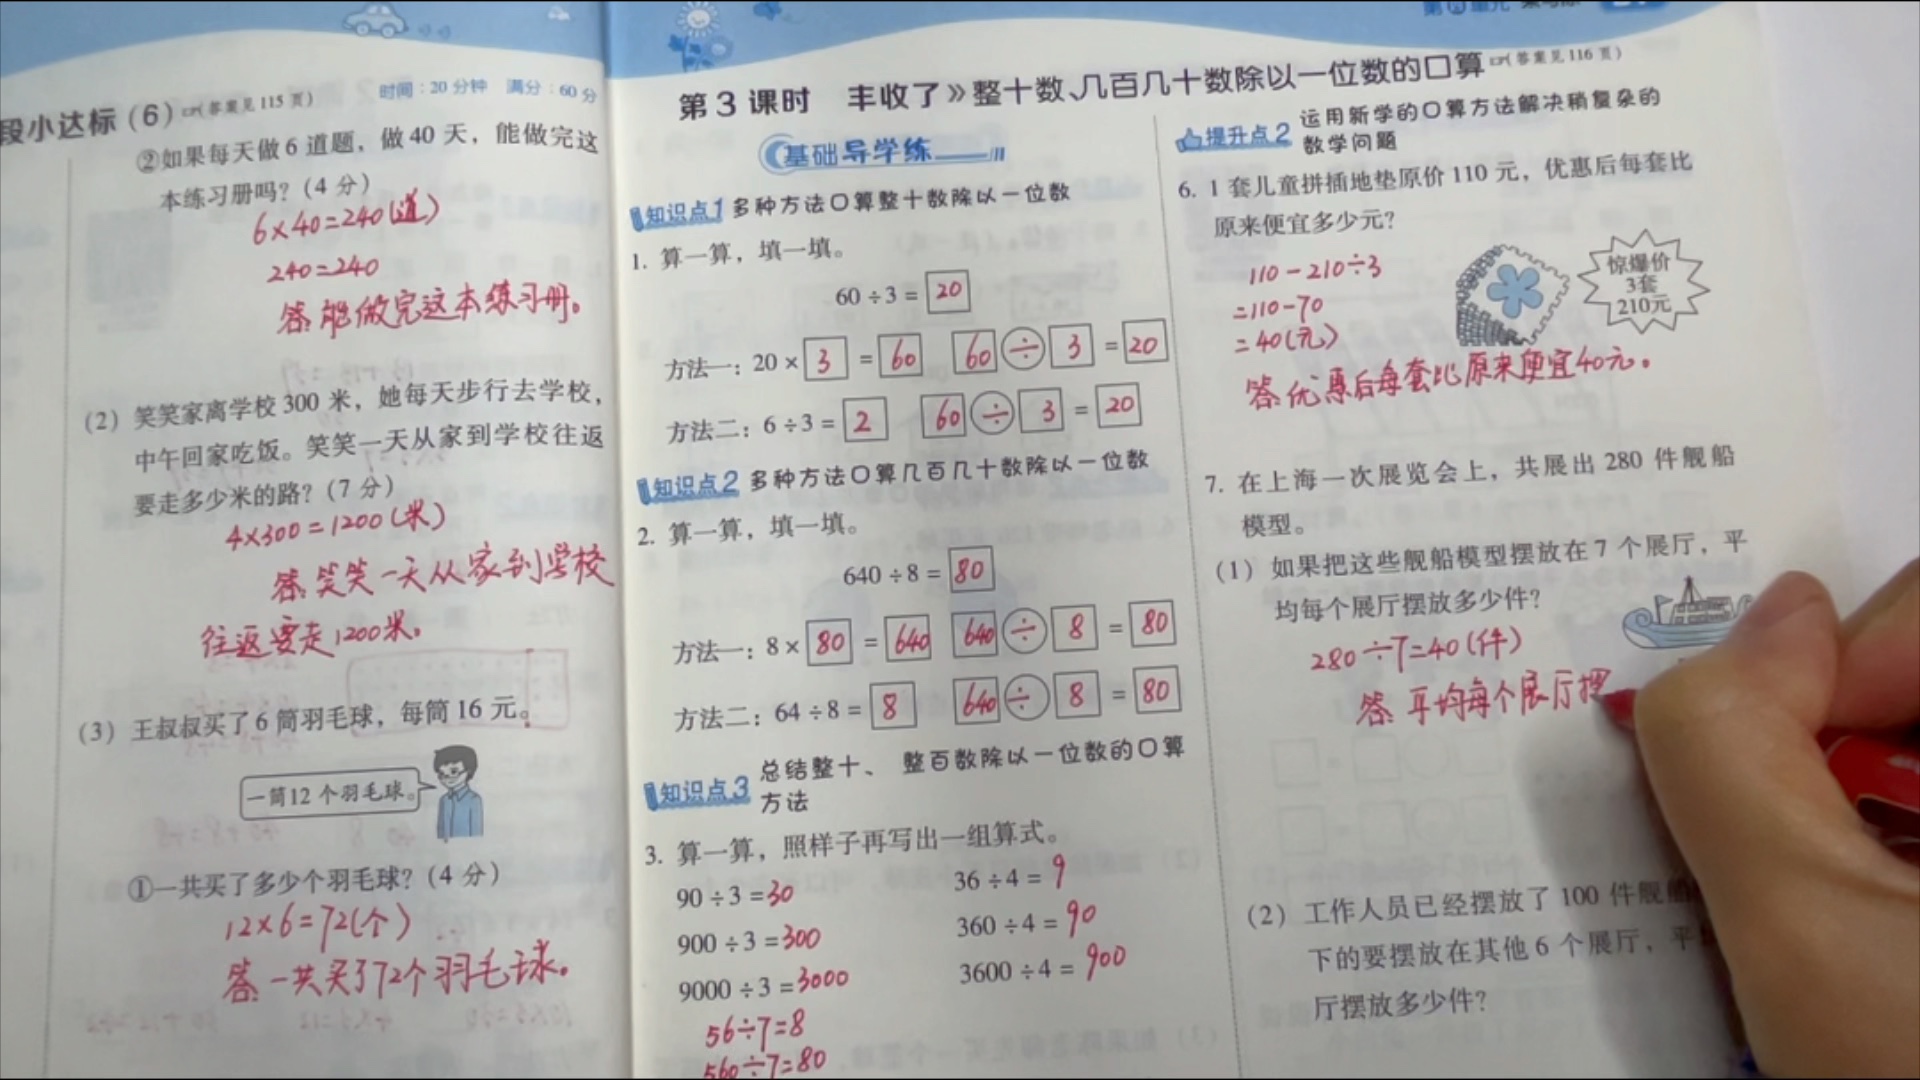 段小达标(6)(答案见115页) 时间:20分钟 满分:60分
②如果每天做6道题，做40天，能做完这
本练习册吗？(4分)
6×40=240(道)
240=240
答:能做完这本练习册。
(2) 笑笑家离学校300米，她每天步行去学校，
中午回家吃饭。笑笑一天从家到学校往返
要走多少米的路？(7分)
4×300=1200(米)
答:笑笑一天从家到学校
往返要走1200米。
(3) 王叔叔买了6筒羽毛球，每筒16元。
一筒12个羽毛球。
①一共买了多少个羽毛球？(4分)
12×6=72(个)
答:一共买了72个羽毛球。
第3课时 丰收了》整十数、几百几十数除以一位数的口算(答案见116页)
基础导学练
知识点1 多种方法口算整十数除以一位数
1. 算一算，填一填。
60÷3=20
方法一：20×3=60 60÷3=20
方法二：6÷3=2 60÷3=20
知识点2 多种方法口算几百几十数除以一位数
2. 算一算，填一填。
640÷8=80
方法一：8×80=640 640÷8=80
方法二：64÷8=8 640÷8=80
知识点3 总结整十、整百数除以一位数的口算
方法
3. 算一算，照样子再写出一组算式。
90÷3=30 36÷4=9
900÷3=300 360÷4=90
9000÷3=3000 3600÷4=900
56÷7=8
560÷7=80
提升点2 运用新学的口算方法解决稍复杂的
数学问题
6. 1套儿童拼插地垫原价110元，优惠后每套比
原来便宜多少元？
110-210÷3
=110-70
=40(元)
惊爆价
3套
210元
答:优惠后每套比原来便宜40元。
7. 在上海一次展览会上，共展出280件舰船
模型。
(1) 如果把这些舰船模型摆放在7个展厅，平
均每个展厅摆放多少件？
280÷7=40(件)
答:平均每个展厅摆
(2) 工作人员已经摆放了100件舰船
下的要摆放在其他6个展厅，平
厅摆放多少件？